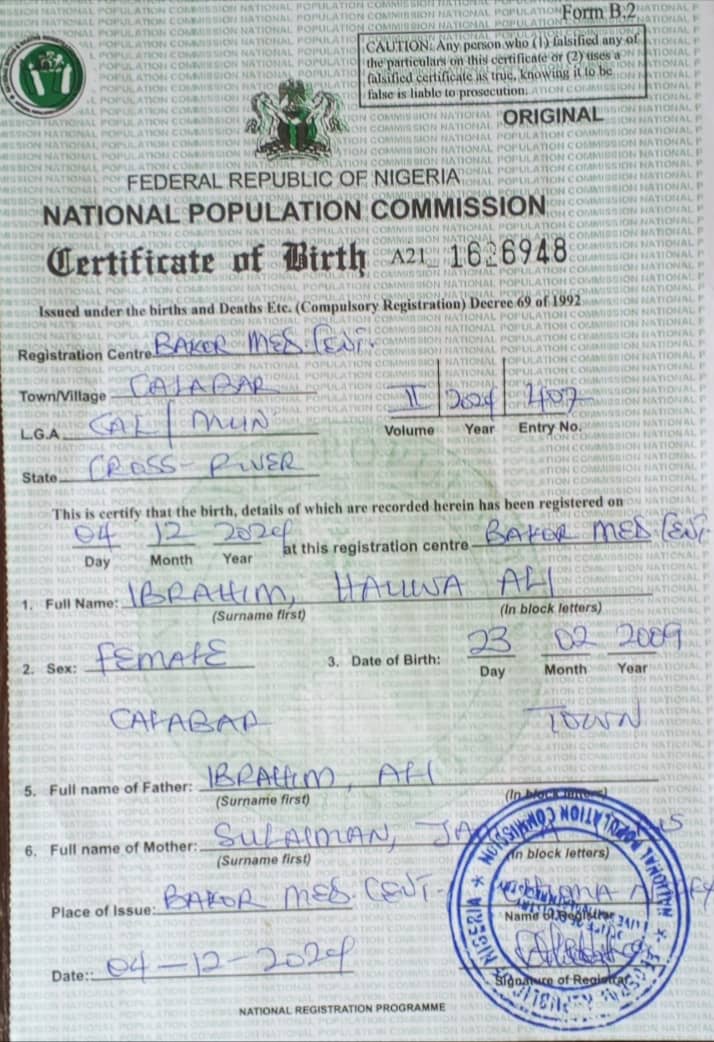 Form B.2
CAUTION: Any person who (1) falsified any of
the particulars on this certificate or (2) uses a
falsified certificate as true, knowing it to be
false is liable to prosecution.
ORIGINAL
FEDERAL REPUBLIC OF NIGERIA
NATIONAL POPULATION COMMISSION
Certificate of Birth A21 1626948
Issued under the births and Deaths Etc. (Compulsory Registration) Decree 69 of 1992
Registration Centre BAKOR MED. CENT.
Town/Village CALABAR
II 2024 2407
L.G.A. CAL/MUN
Volume Year Entry No.
State CROSS-RIVER
This is certify that the birth, details of which are recorded herein has been registered on
04 12 2024 at this registration centre BAKOR MED. CENT.
Day Month Year
1. Full Name: IBRAHIM, HAUWA ALI
(Surname first) (In block letters)
2. Sex: FEMALE 3. Date of Birth: 23 02 2009
Day Month Year
CALABAR TOWN
5. Full name of Father: IBRAHIM, ALI
(Surname first) (In block letters)
6. Full name of Mother: SULAIMAN,
(Surname first) (In block letters)
Place of Issue: BAKOR MED. CENT.
Name of Registrar
Date: 04-12-2024
Signature of Registrar
NATIONAL REGISTRATION PROGRAMME
NATIONAL POPULATION COMMISSION
NIGERIA